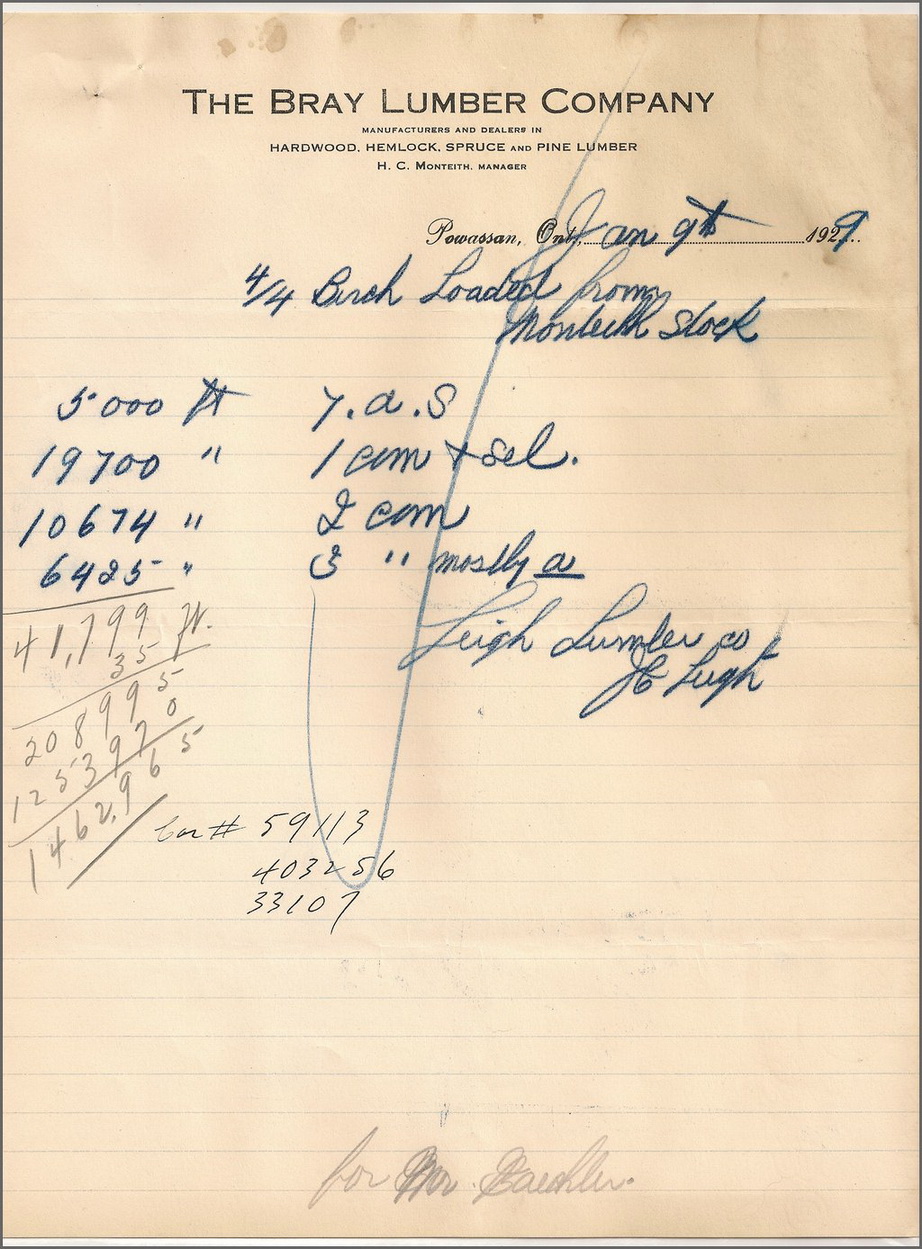 THE BRAY LUMBER COMPANY
MANUFACTURERS AND DEALERS IN
HARDWOOD, HEMLOCK, SPRUCE AND PINE LUMBER
H. C. MONTEITH, MANAGER
Powassan, Ont., Jan 9th 1929.
4/4 Birch Loaded from
Monteith Stock
5000 ft 7.a.S
19700 " 1 com + sel.
10674 " 2 com
6425 " 3 " mostly a
41,799 ft.
35
208995
125397 0
1462,965
Leigh Lumber co
JC Leigh
Car # 59113
403256
33107
for Mr.